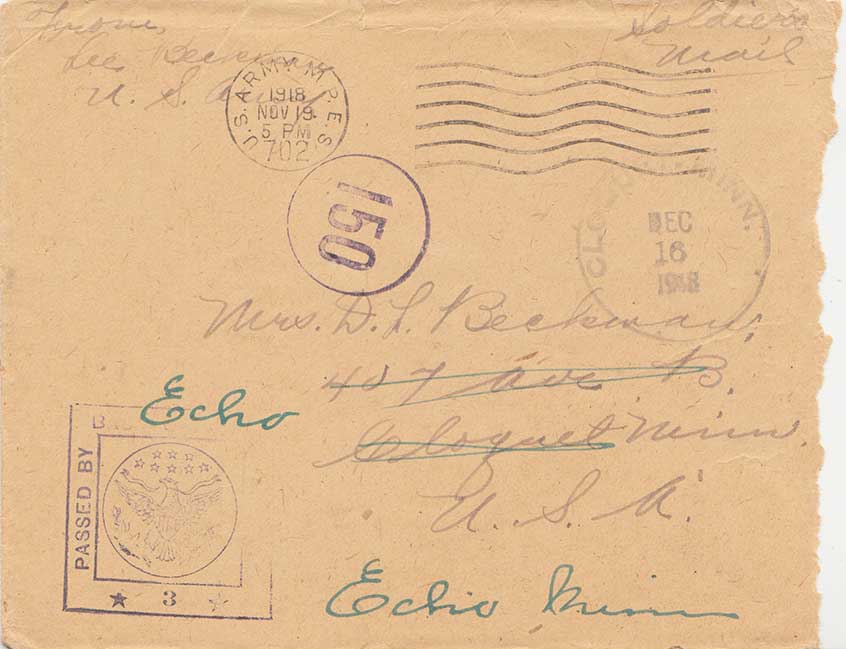 From,
Lee Beckman
U. S. Army
Soldier's
Mail
U.S. ARMY M.P.E.S.
1918
NOV 19
5 PM
702
150
MINN.
DEC
16
1918
Mrs. D. L. Beckman,
407 Ave. B.
Cloquet Minn.
U. S. A.
Echo
PASSED BY
3
Echo Minn